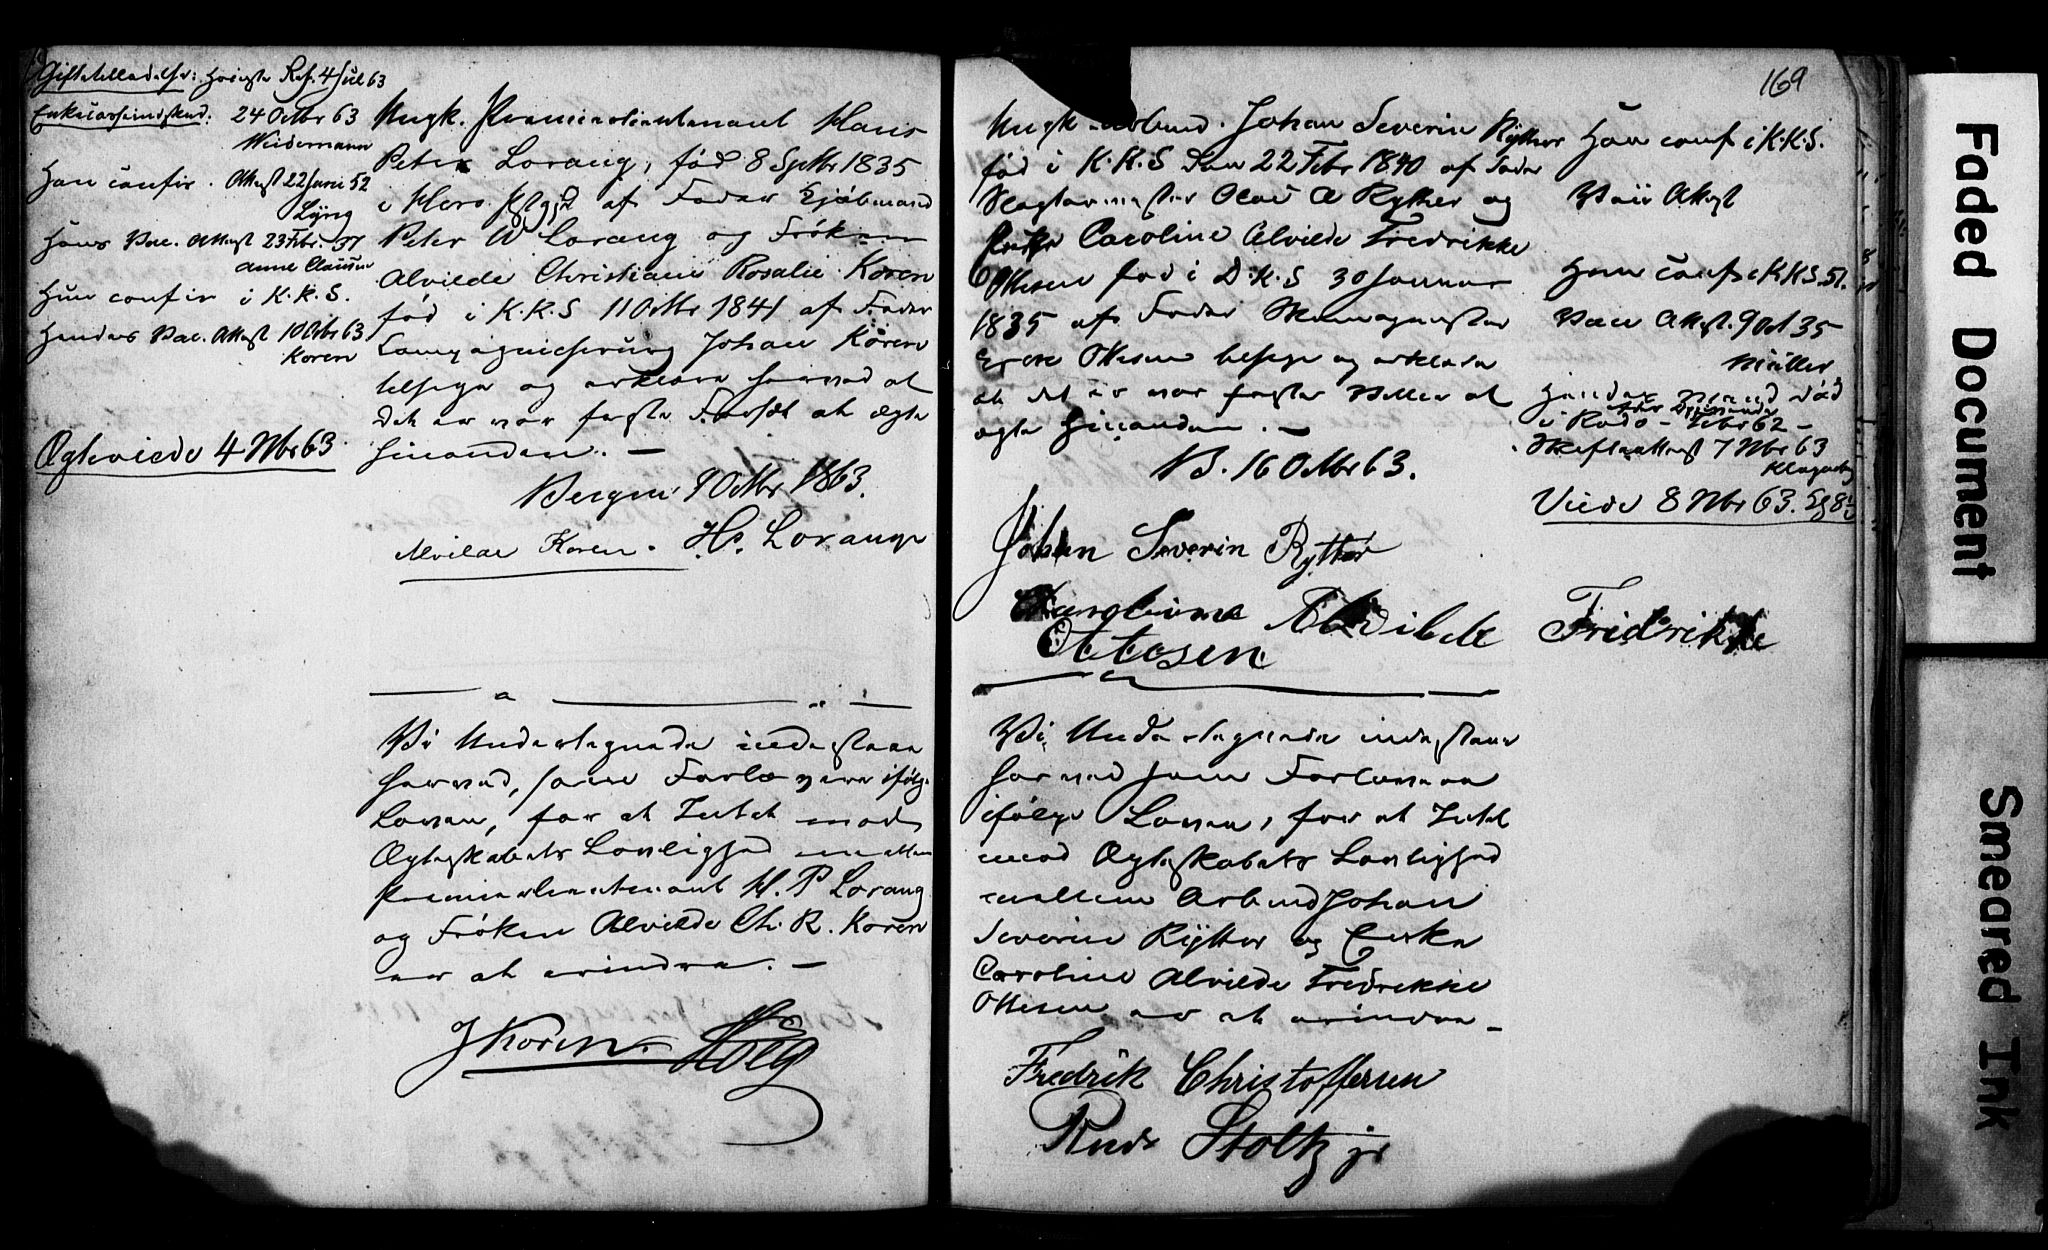 Giftetilladelse: Høieste Res. 4 Jul 63
Enkekasseindskud: 24 Octbr 63
Weidemann
Han confir. Attest 22 Juni 52
Lyng
Hans Vac. Attest 23 Febr. 37
Anne Clausen
Hun confir i K.K.S.
Hendes Vac. Attest 10 Octbr 63
Koren
Ægteviede 4 Nbr 63.
Ungk. Premierlieutenant Hans
Peter Lorang, fød 8 Septbr 1835
i Hero Pstgjd af Fader Kjøbmand
Peter W Lorang og Frøken
Alvilde Christiane Rosalie Koren
fød i K.K.S 11 Octbr 1841 af Fader
Compagniechirurg Johan Koren
tilsige og erklære herved at
det er vor faste Forsæt at ægte
hinanden. —
Bergen 9 Octbr 1863.
Alvilde Koren. H.P. Lorange
Vi Undertegnede indestaae
herved, som Forlovere ifølge
Loven, for at Intet mod
Ægteskabets Lovlighed mellem
Premierlieutenant H. P Lorang
og Frøken Alvilde Ch. R. Koren
er at erindre. —
J Koren.
169
Ungk Johan Severin Rytter
fød i K.K.S den 22 Febr 1840 af Fader
Slagtermester Olai A Rytter og
Enke Caroline Alvilde Fredrikke
Ottesen fød i D.K.S 30 Januar
1835 af Fader
Ottesen tilsige og erklære
at det er vor faste Villie at
ægte hinanden. —
B. 16 Octbr 63.
Johan Severin Rytter
Karoleine Alvilde Fridrikke
Ottesen
Han conf i K.K.S.
Vac Attest
Hun conf i K.K.S. 51.
Vacc Attest. 9 Oct 35
Müller
Hendes Mand død
i Rødø - Febr 62 -
Skifteattest 7 Nbr 63
Viede 8 Nbr 63.
Vi Undertegnede indestaae
herved som Forlovere
ifølge Loven, for at Intet
mod Ægteskabets Lovlighed
mellem Arbmd Johan
Severin Rytter og Enke
Caroline Alvilde Fredrikke
Ottesen er at erindre —
Fredrik Christoffersen
Stoltz jr
Faded Document
Smeared Ink